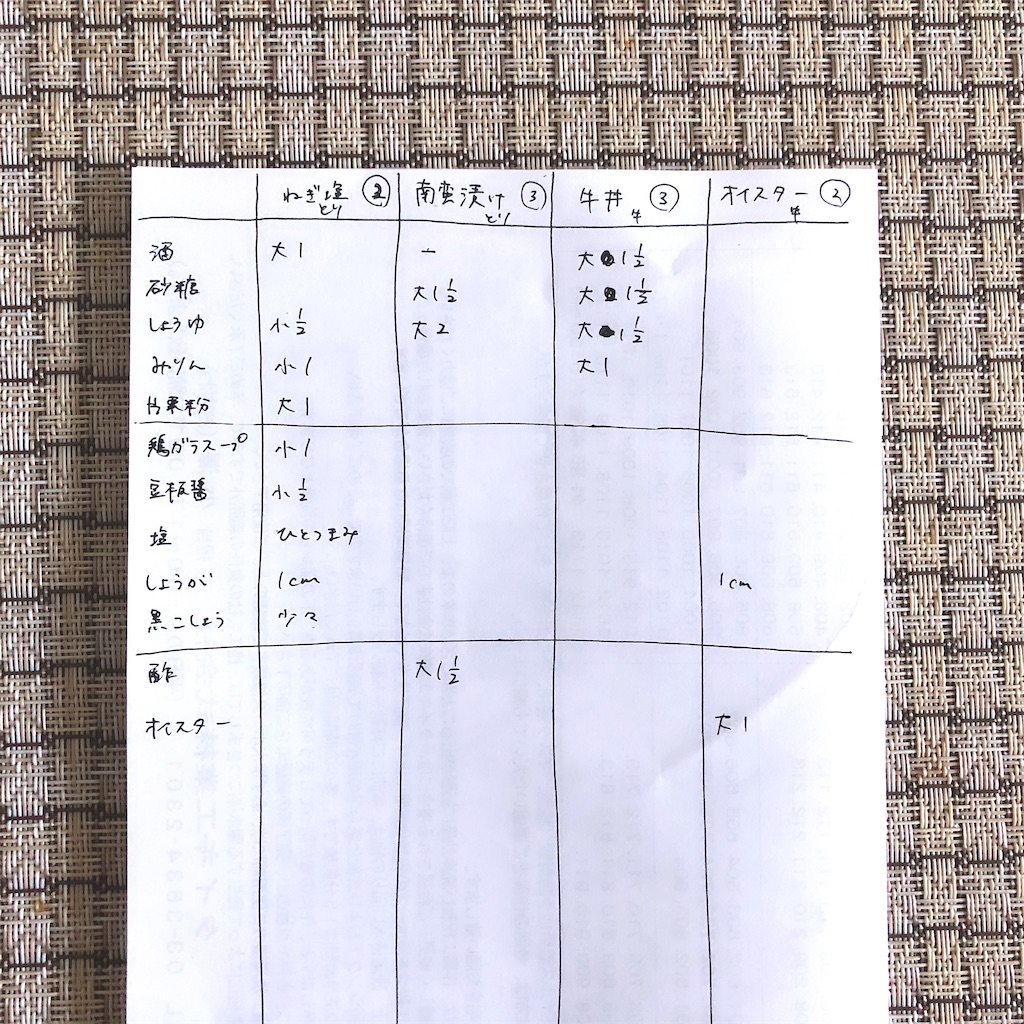 ねぎ塩 ② 南蛮漬け ③ 牛丼 ③ オイスター ②
とり とり 牛 牛
酒 大1 ー 大1½
砂糖 大1½ 大1½
しょうゆ 小½ 大2 大1½
みりん 小1 大1
片栗粉 大1
鶏ガラスープ 小1
豆板醤 小½
塩 ひとつまみ
しょうが 1cm 1cm
黒こしょう 少々
酢 大1½
オイスター 大1